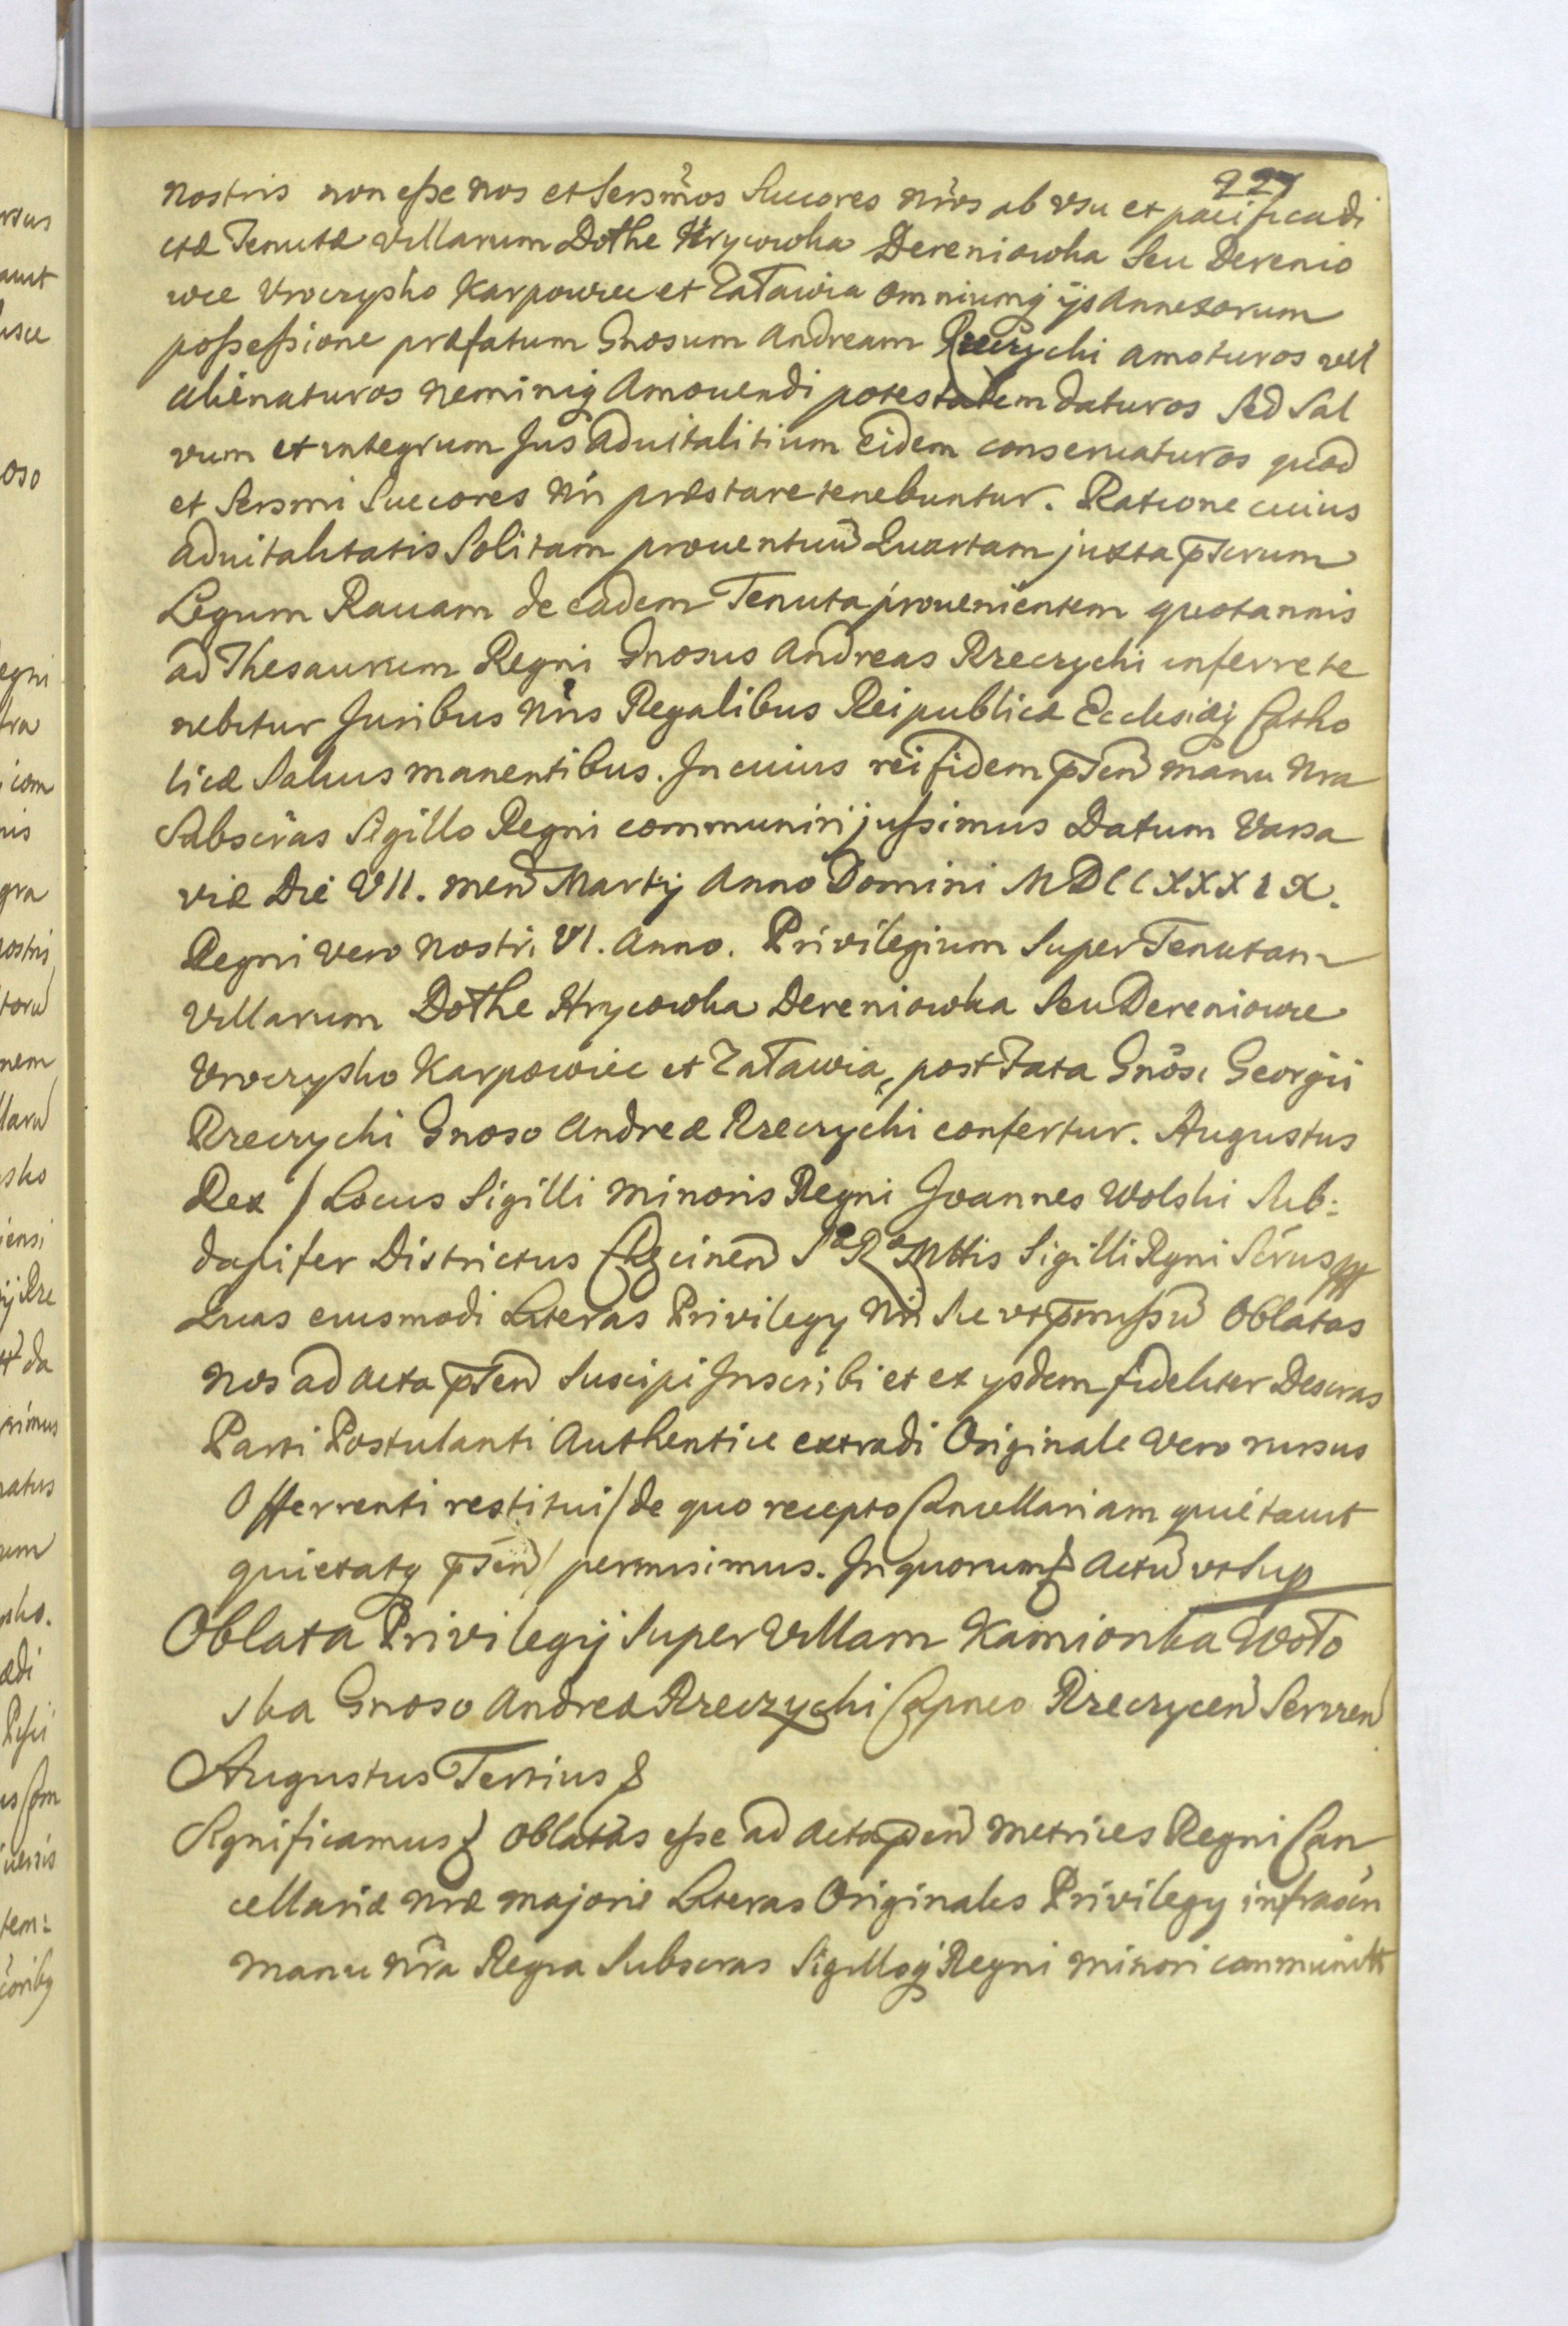 227
nostris non esse nos et Sersm̃os Succores nr̃os ab vsu et pacifica di
ctæ Tenutæ villarum Dothe Hrycowka Dereniowka Seu Derenio
wce Vroczysko Karpowiec et Załawia omniumq ijs Annexorum
possessione præfatum Gnosum Andream Rzeczycki amoturos vel
alienaturos neminiq Amouendi potestatem daturos Sed Sal
vum et integrum Jus aduitalitium eidem conseruaturos quod
et Sersmi Succores Nri præstare tenebuntur. Ratione cuius
aduitalitatis Solitam prouentuũ Quartam juxta p̃scrum
Legum Rauam de eadem Tenuta prouenientem quotannis
ad Thesaurum Regni Gnosus Andreas Rzeczycki inferre te
nebitur Juribus nr̃is Regalibus Reipublicæ Ecclesiæq Catho
licæ Saluis manentibus. In cuius rei fidem p̃señ manu nra
Subscr̃as Sigillo Regni communiri jussimus Datum Varsa
viæ Die VII. mens̃ Martij Anno Domini MDCCXXXIX.
Regni vero nostri VI. Anno. Privilegium Super Tenutam
Villarum Dothe Hrycowka Dereniowka Seu Dereniowce
Vroczysko Karpowiec et Załawia, post Fata Gnosi Georgii
Rzeczycki Gnoso Andreæ Rzeczycki confertur. Augustus
Rex / Locus Sigilli minoris Regni Joannes Wolski Sub:
dapifer Districtus S R Mttis Sigilli Rgni Scrus
Quas eiusmodi Literas Privilegy Nri Se vt Oblatas
nos ad acta p̃señ Suscipi Inscribi et ex ysdem fideliter Descras
Parti Postulanti Authentice extradi Originale vero rursus
Offerrenti restitui / de quo recepto Cancellariam quietauit
quietatq p̃señ / permisimus. In quorum & Actũ vt Sup
Oblata Privilegij Super Villam Kamionka Woło
ska Gnoso Andreæ Rzeczycki Capneo Rzeczyceñ Servien
Augustus Tertius &
Significamus & oblatas esse ad Acta p̃señ metrices Regni Can
cellariæ nræ majoris Literas Originales Privilegy infrascri
manu nr̃a Regia Subscras Sigilloq Regni minori communitt